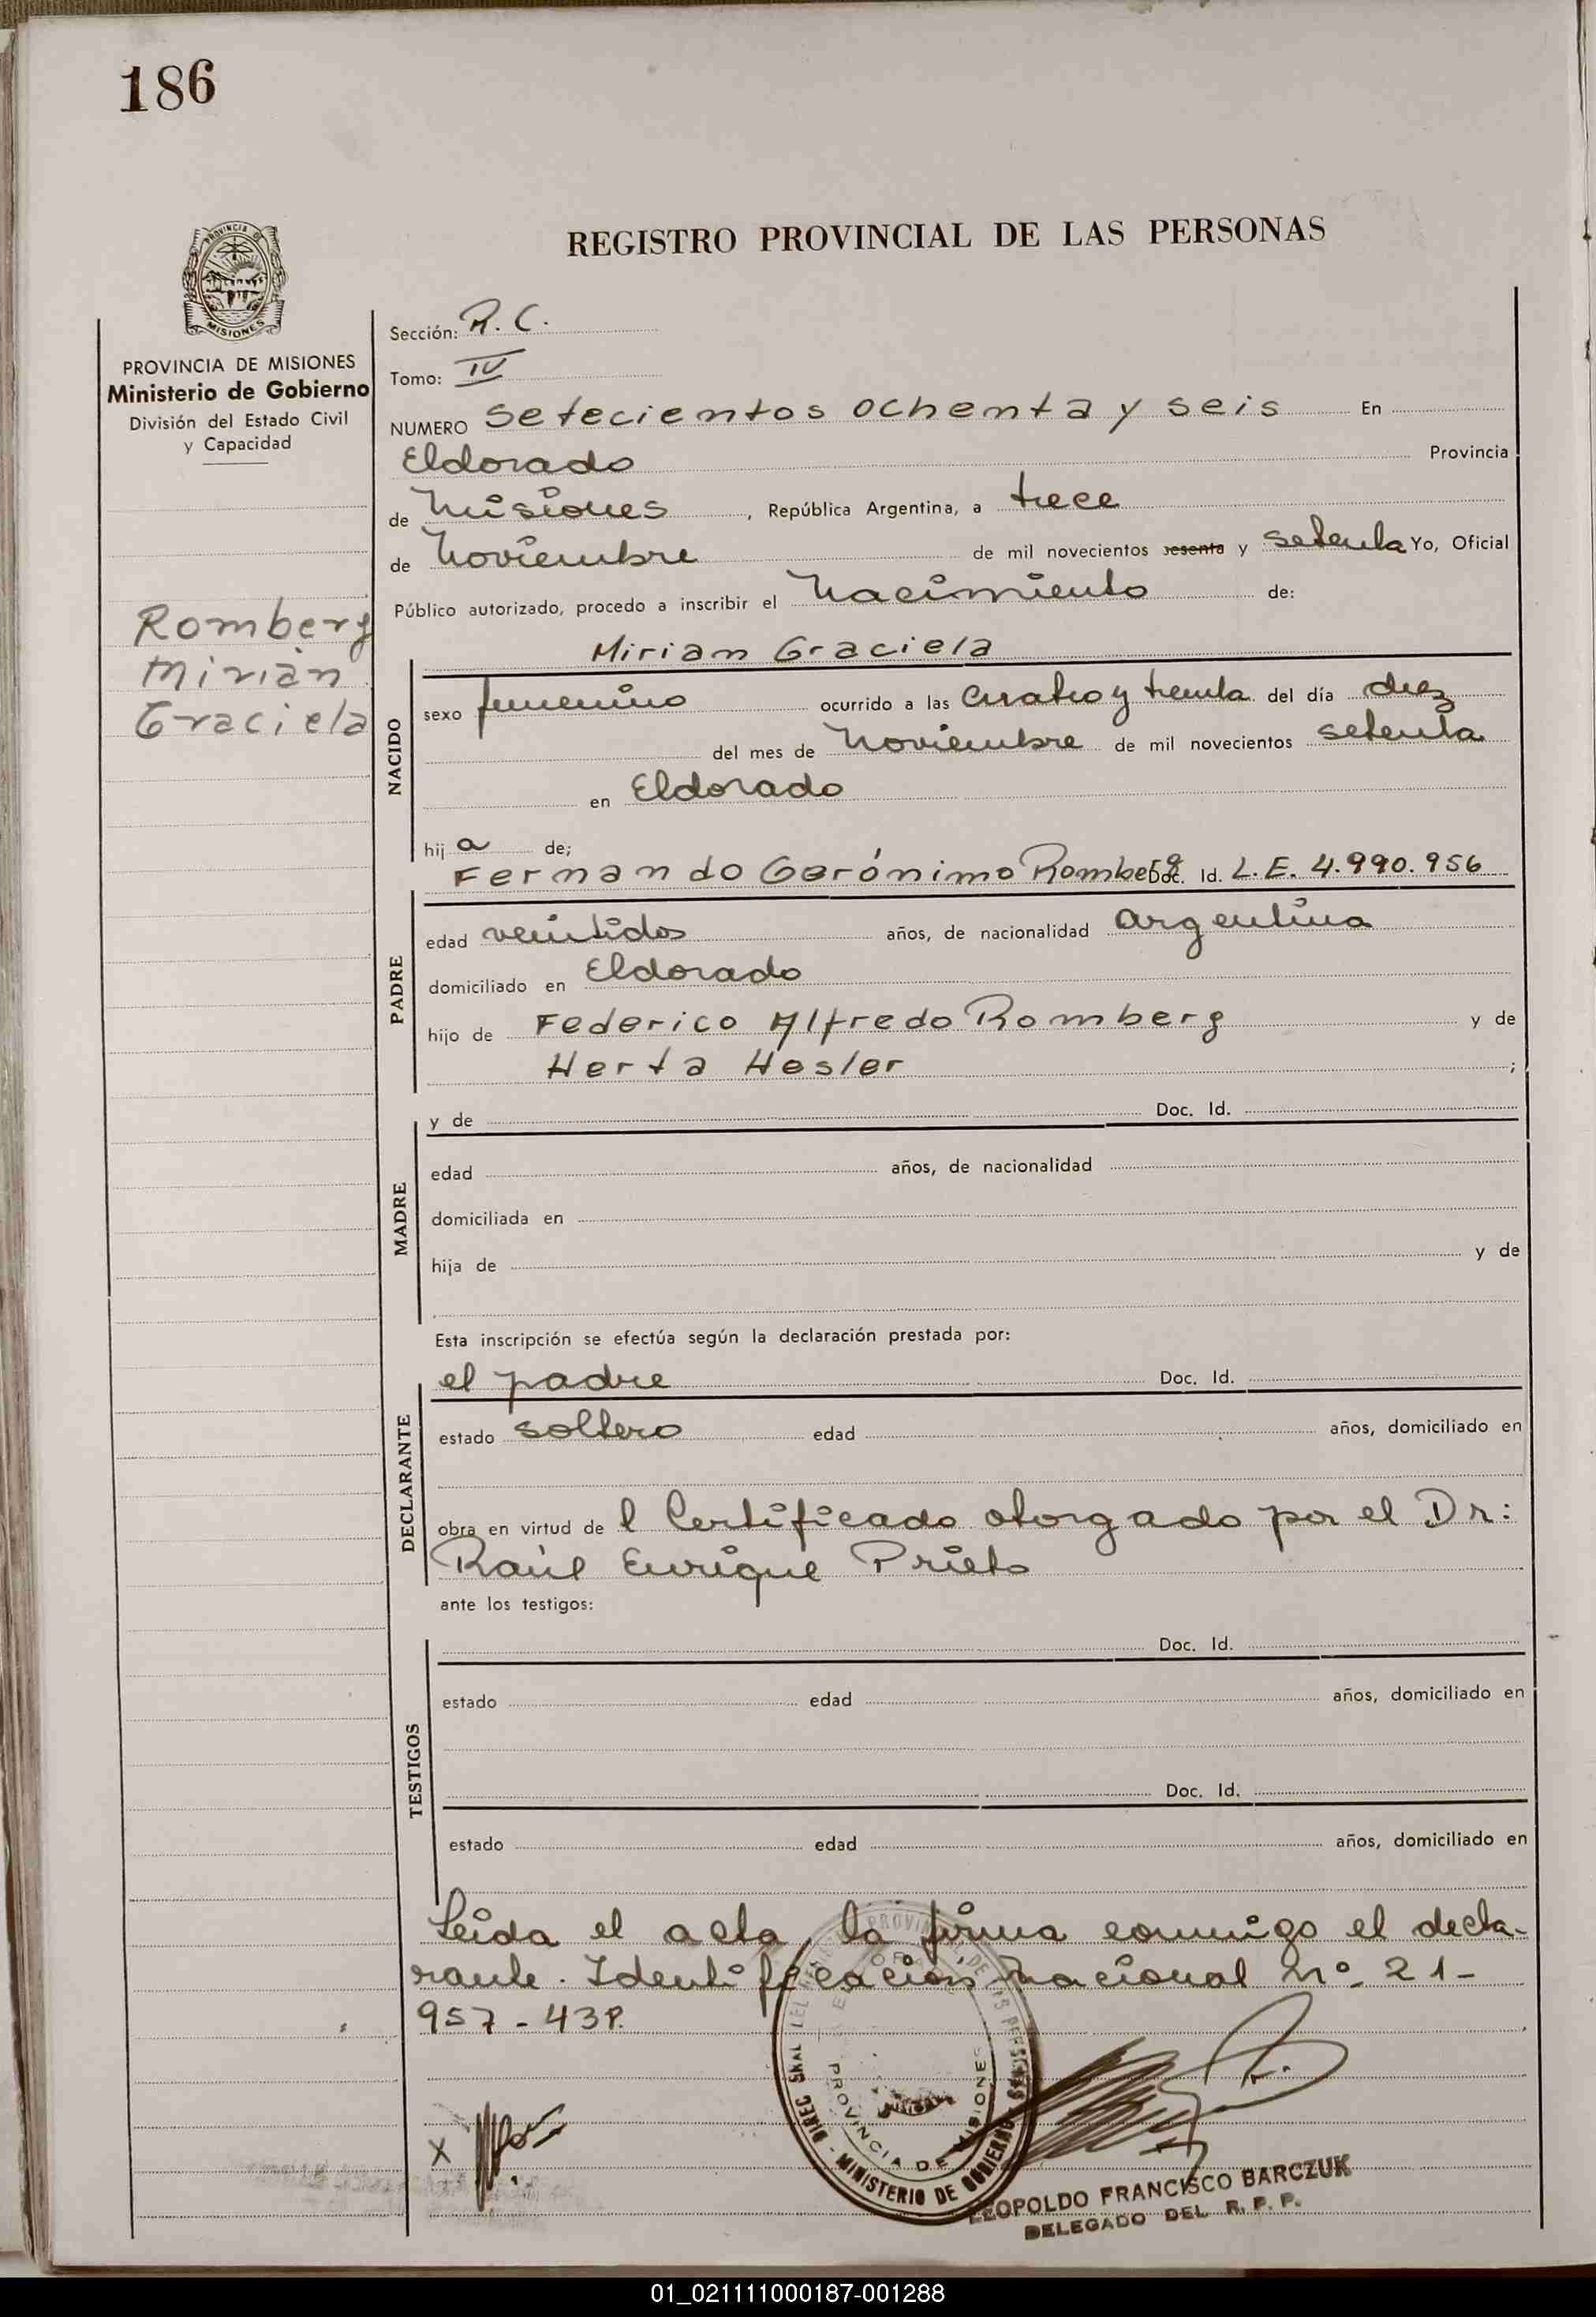 186
REGISTRO PROVINCIAL DE LAS PERSONAS
PROVINCIA DE MISIONES
Ministerio de Gobierno
División del Estado Civil
y Capacidad
Romberg
Mirian
Graciela
Sección: R. C.
Tomo: IV
NUMERO Setecientos ochenta y seis En
Eldorado Provincia
de Misiones, República Argentina, a trece
de Noviembre de mil novecientos sesenta y setenta Yo, Oficial
Público autorizado, procedo a inscribir el Nacimiento de:
NACIDO
Mirian Graciela
sexo femenino ocurrido a las cuatro y treinta del día diez
del mes de Noviembre de mil novecientos setenta
en Eldorado
hij a de;
PADRE
Fernando Gerónimo Romberg Doc. Id. L.E. 4.990.956
edad veintidos años, de nacionalidad argentina
domiciliado en Eldorado
hijo de Federico Alfredo Romberg y de
Herta Hesler ;
MADRE
y de Doc. Id.
edad años, de nacionalidad
domiciliada en
hija de y de
Esta inscripción se efectúa según la declaración prestada por:
DECLARANTE
el padre Doc. Id.
estado soltero edad años, domiciliado en
obra en virtud de l Certificado otorgado por el Dr:
Raúl Enrique Prieto
ante los testigos:
TESTIGOS
Doc. Id.
estado edad años, domiciliado en
Doc. Id.
estado edad años, domiciliado en
Leida el acta, la firma conmigo el decla-
rante. Identificación nacional Nº 21-
957-438.
X
PROVINCIA DE MISIONES
MINISTERIO DE GOBIERNO
LEOPOLDO FRANCISCO BARCZUK
DELEGADO DEL R. P. P.
01_021111000187-001288